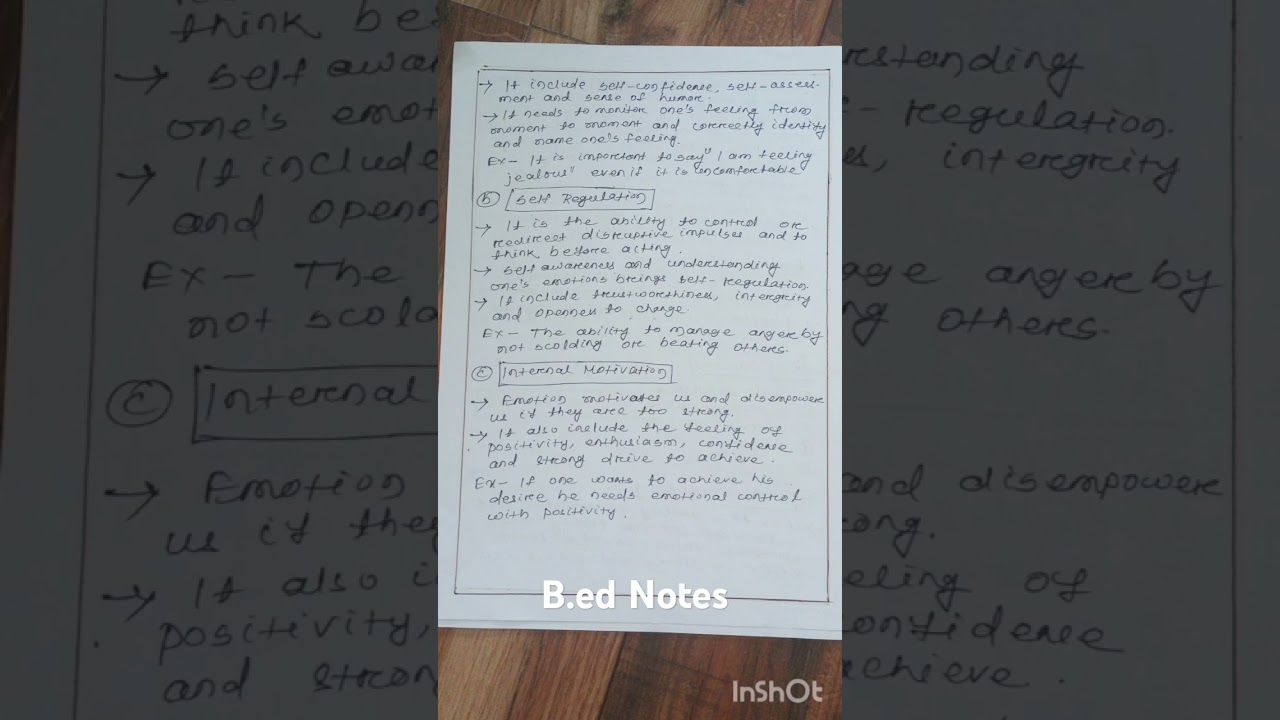 → It include self-confidence, self-assess-
ment and sense of humor.
→ It needs to monitor one's feeling from
moment to moment and correctly identity
and name one's feeling.
Ex- It is important to say "I am feeling
jealous" even if it is uncomfortable
(b) Self Regulation
→ It is the ability to control or
redirect disruptive impulses and to
think before acting.
→ Self awareness and understanding
one's emotions brings self-regulation.
→ It include trustworthiness, intergrity
and openner to change.
Ex- The ability to manage anger by
not scolding or beating others.
(c) Internal Motivation
→ Emotion motivates us and disempower
us if they are too strong.
→ It also include the feeling of
positivity, enthusiasm, confidence
and strong drive to achieve.
Ex- If one wants to achieve his
desire he needs emotional control
with positivity.
B.ed Notes
InShOt